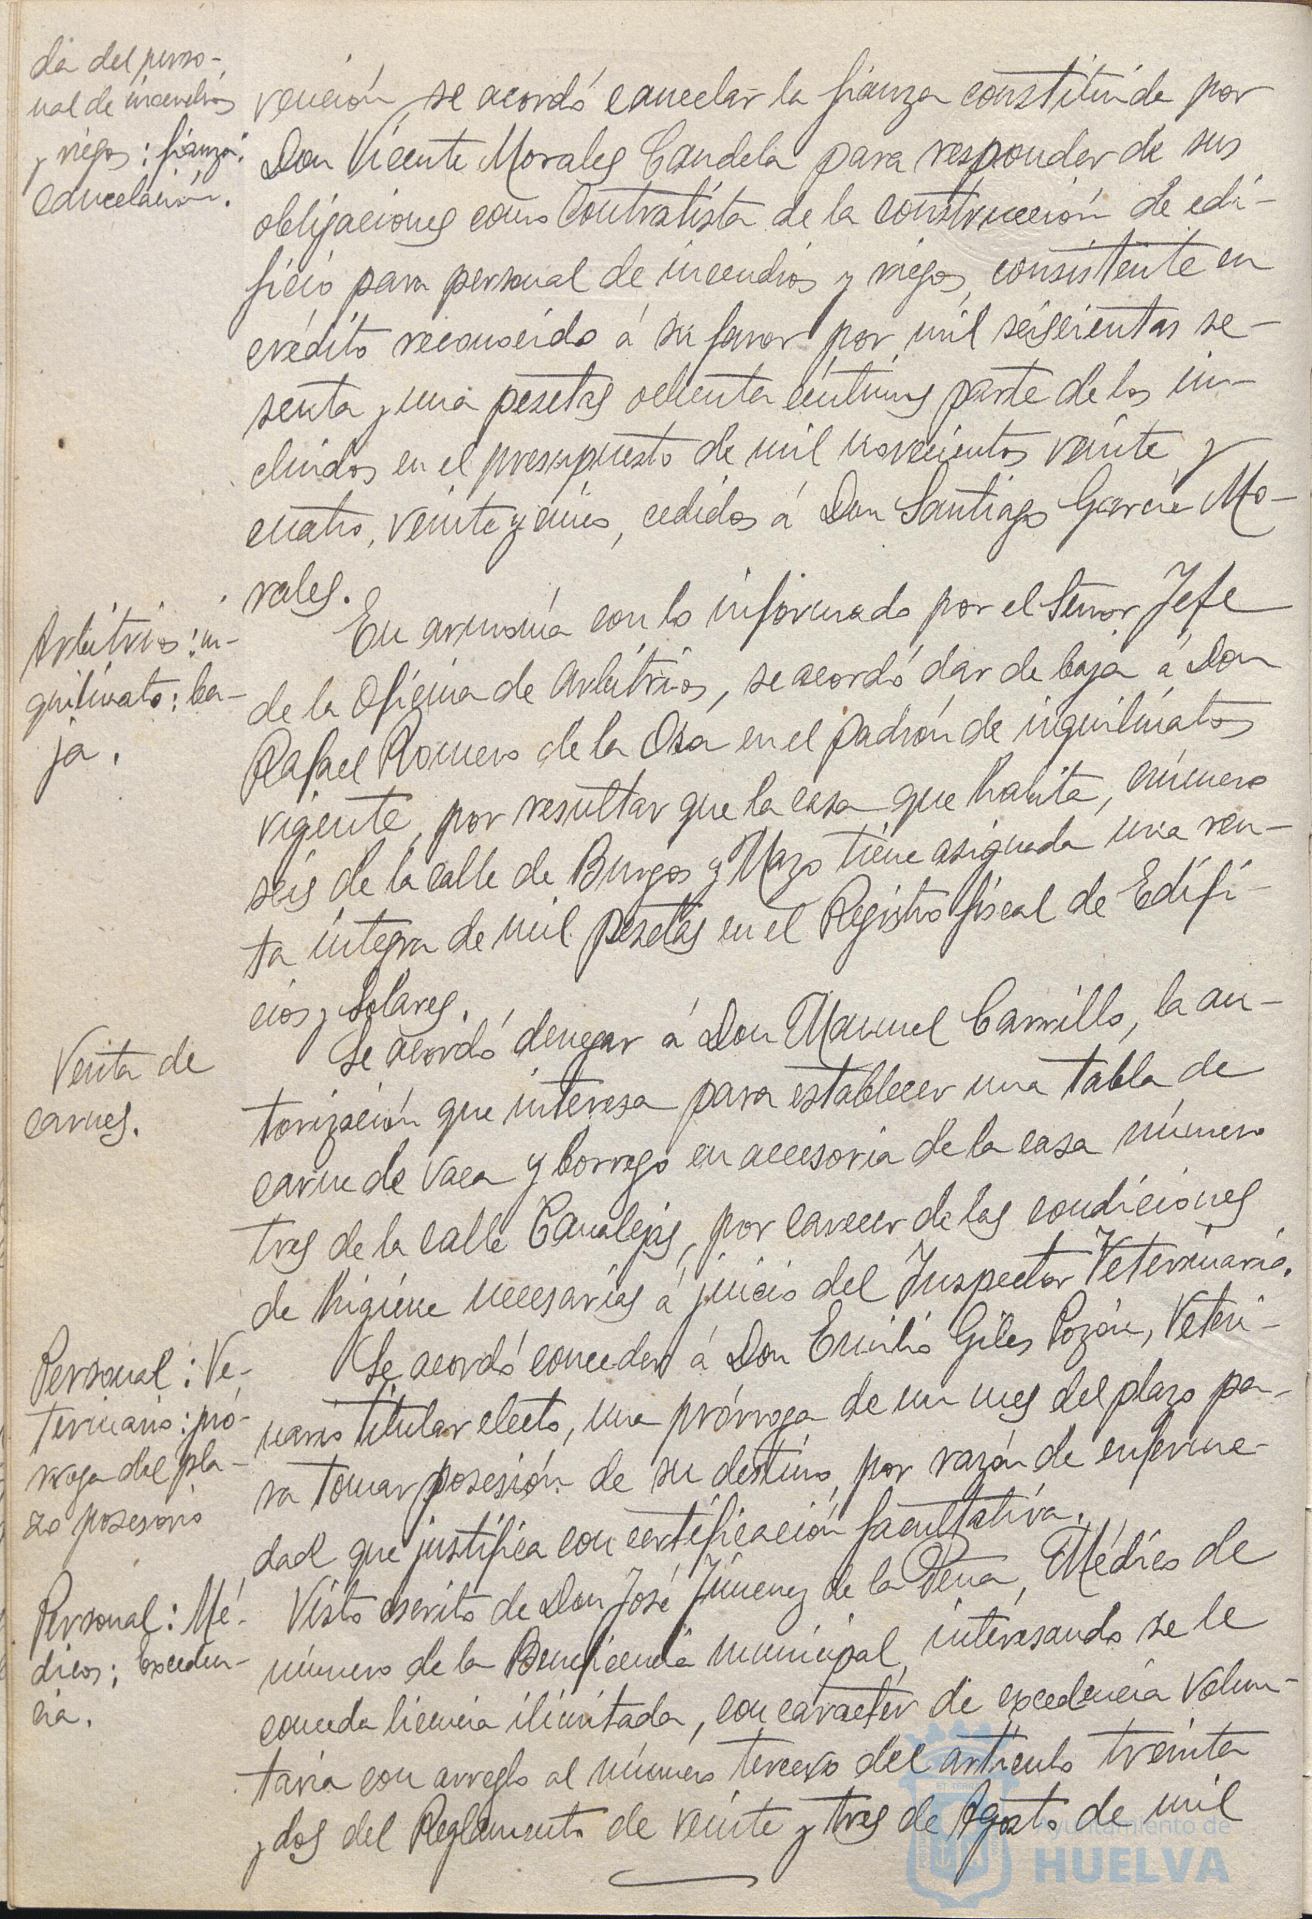 da del perso-
nal de incendios
y riegos: fianza:
cancelación.
vención, se acordó cancelar la fianza constituida por
Don Vicente Morales Candela para responder de sus
obligaciones como Contratista de la construcción de edi-
ficio para personal de incendios y riegos, consistente en
crédito reconocido á su favor por mil seiscientas se-
senta y una pesetas ochenta céntimos parte de los in-
cluidos en el presupuesto de mil novecientos veinte y
cuatro, veinte y cinco, cedidos á Don Santiago García Mo-
rales.
Arbitrios: in-
quilinato: ba-
ja.
En armonía con lo informado por el Señor Jefe
de la Oficina de Arbitrios, se acordó dar de baja á Don
Rafael Romero de la Osa en el padrón de inquilinatos
vigente, por resultar que la casa que habita, número
seis de la calle de Burgos y Mazo tiene asignada una ren-
ta íntegra de mil pesetas en el Registro fiscal de Edifi-
cios y Solares.
Venta de
carnes.
Se acordó denegar á Don Manuel Carrillo, la au-
torización que interesa para establecer una tabla de
carne de vaca y borrego en accesoria de la casa número
tres de la calle Canalejas, por carecer de las condiciones
de higiene necesarias á juicio del Inspector Veterinario.
Personal: Ve-
terinario: pró-
rroga del pla-
zo posesorio
Se acordó conceder á Don Emilio Giles Pozón, Veteri-
nario titular electo, una prórroga de un mes del plazo pa-
ra tomar posesión de su destino, por razón de enferme-
dad que justifica con certificación facultativa.
Personal: Mé-
dicos: Exceden-
cia.
Visto escrito de Don José Jímenez de la Peña, Médico de
número de la Beneficencia municipal, interesando se le
conceda licencia ilimitada, con carácter de excedencia volun-
taria con arreglo al número tercero del artículo treinta
y dos del Reglamento de veinte y tres de Agosto de mil
Ayuntamiento de
HUELVA